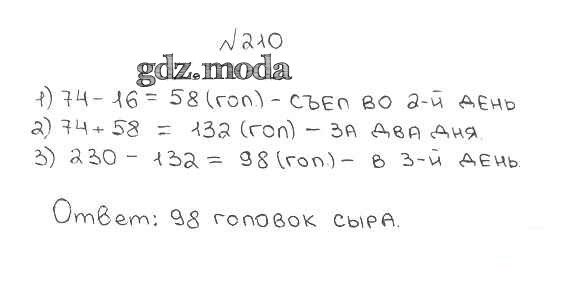 №210
gdz.moda
1) 74 - 16 = 58 (гол) - съел во 2-й день
2) 74 + 58 = 132 (гол) - за два дня.
3) 230 - 132 = 98 (гол.) - в 3-й день.
Ответ: 98 головок сыра.